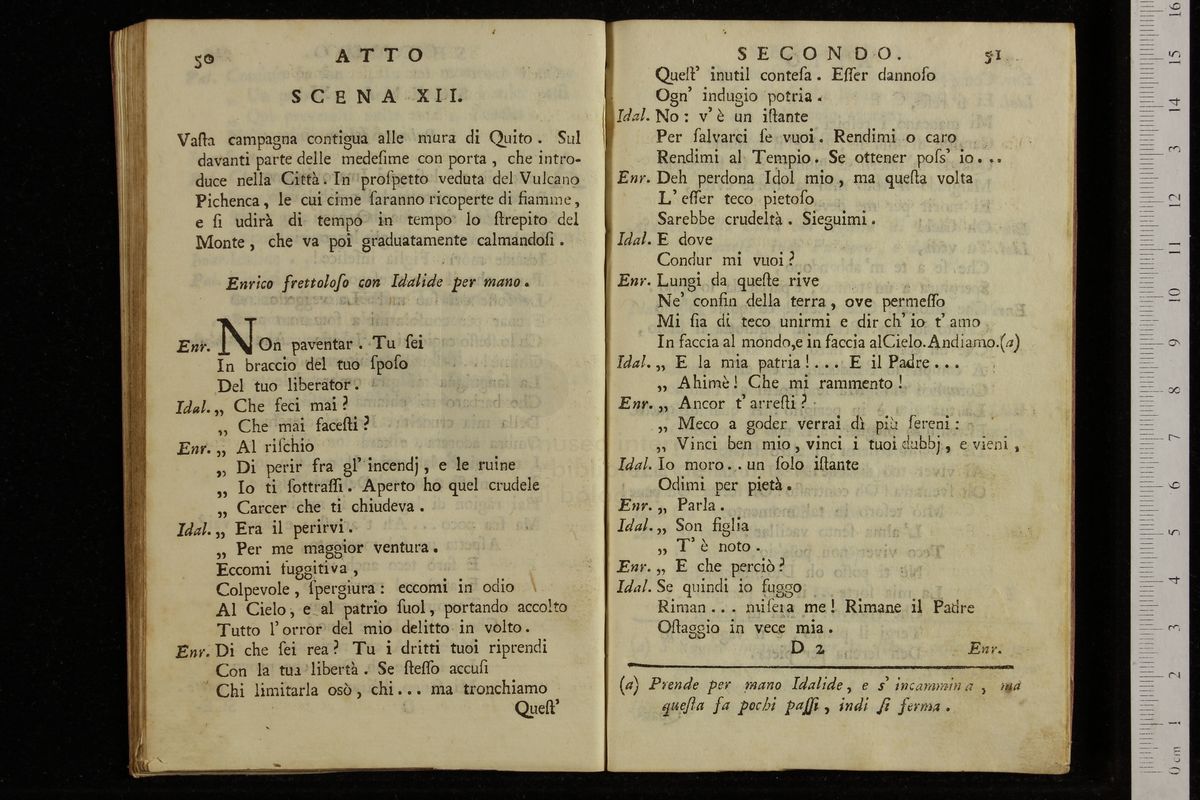 50 ATTO
SCENA XII.
Vaſta campagna contigua alle mura di Quito. Sul
davanti parte delle medeſime con porta, che intro-
duce nella Città. In proſpetto veduta del Vulcano
Pichenca, le cui cime ſaranno ricoperte di fiamme,
e ſi udirà di tempo in tempo lo ſtrepito del
Monte, che va poi graduatamente calmandoſi.
Enrico frettoloſo con Idalide per mano.
Enr. NOn paventar. Tu ſei
In braccio del tuo ſpoſo
Del tuo liberator.
Idal. „ Che feci mai?
„ Che mai faceſti?
Enr. „ Al riſchio
„ Di perir fra gl' incendj, e le ruine
„ Io ti ſottraſſi. Aperto ho quel crudele
„ Carcer che ti chiudeva.
Idal. „ Era il perirvi.
„ Per me maggior ventura.
Eccomi fuggitiva,
Colpevole, ſpergiura: eccomi in odio
Al Cielo, e al patrio ſuol, portando accolto
Tutto l'orror del mio delitto in volto.
Enr. Di che ſei rea? Tu i dritti tuoi riprendi
Con la tua libertà. Se ſteſſo accuſi
Chi limitarla osò, chi... ma tronchiamo
Queſt'
SECONDO. 51
Queſt' inutil conteſa. Eſſer dannoſo
Ogn' indugio potria.
Idal. No: v'è un iſtante
Per ſalvarci ſe vuoi. Rendimi o caro
Rendimi al Tempio. Se ottener poſs' io...
Enr. Deh perdona Idol mio, ma queſta volta
L' eſſer teco pietoſo
Sarebbe crudeltà. Sieguimi.
Idal. E dove
Condur mi vuoi?
Enr. Lungi da queſte rive
Ne' confin della terra, ove permeſſo
Mi ſia di teco unirmi e dir ch' io t' amo
In faccia al mondo,e in faccia alCielo.Andiamo.(a)
Idal. „ E la mia patria!... E il Padre...
„ Ahimè! Che mi rammento!
Enr. „ Ancor t' arreſti?
„ Meco a goder verrai dì più ſereni:
„ Vinci ben mio, vinci i tuoi dubbj, e vieni,
Idal. Io moro.. un ſolo iſtante
Odimi per pietà.
Enr. „ Parla.
Idal. „ Son figlia
„ T' è noto.
Enr. „ E che perciò?
Idal. Se quindi io fuggo
Riman... miſera me! Rimane il Padre
Oſtaggio in vece mia.
D 2 Enr.
(a) Prende per mano Idalide, e s' incammina, ma
queſta fa pochi paſſi, indi ſi ferma.
16
15
14
13
12
11
10
9
8
7
6
5
4
3
2
1
0 cm